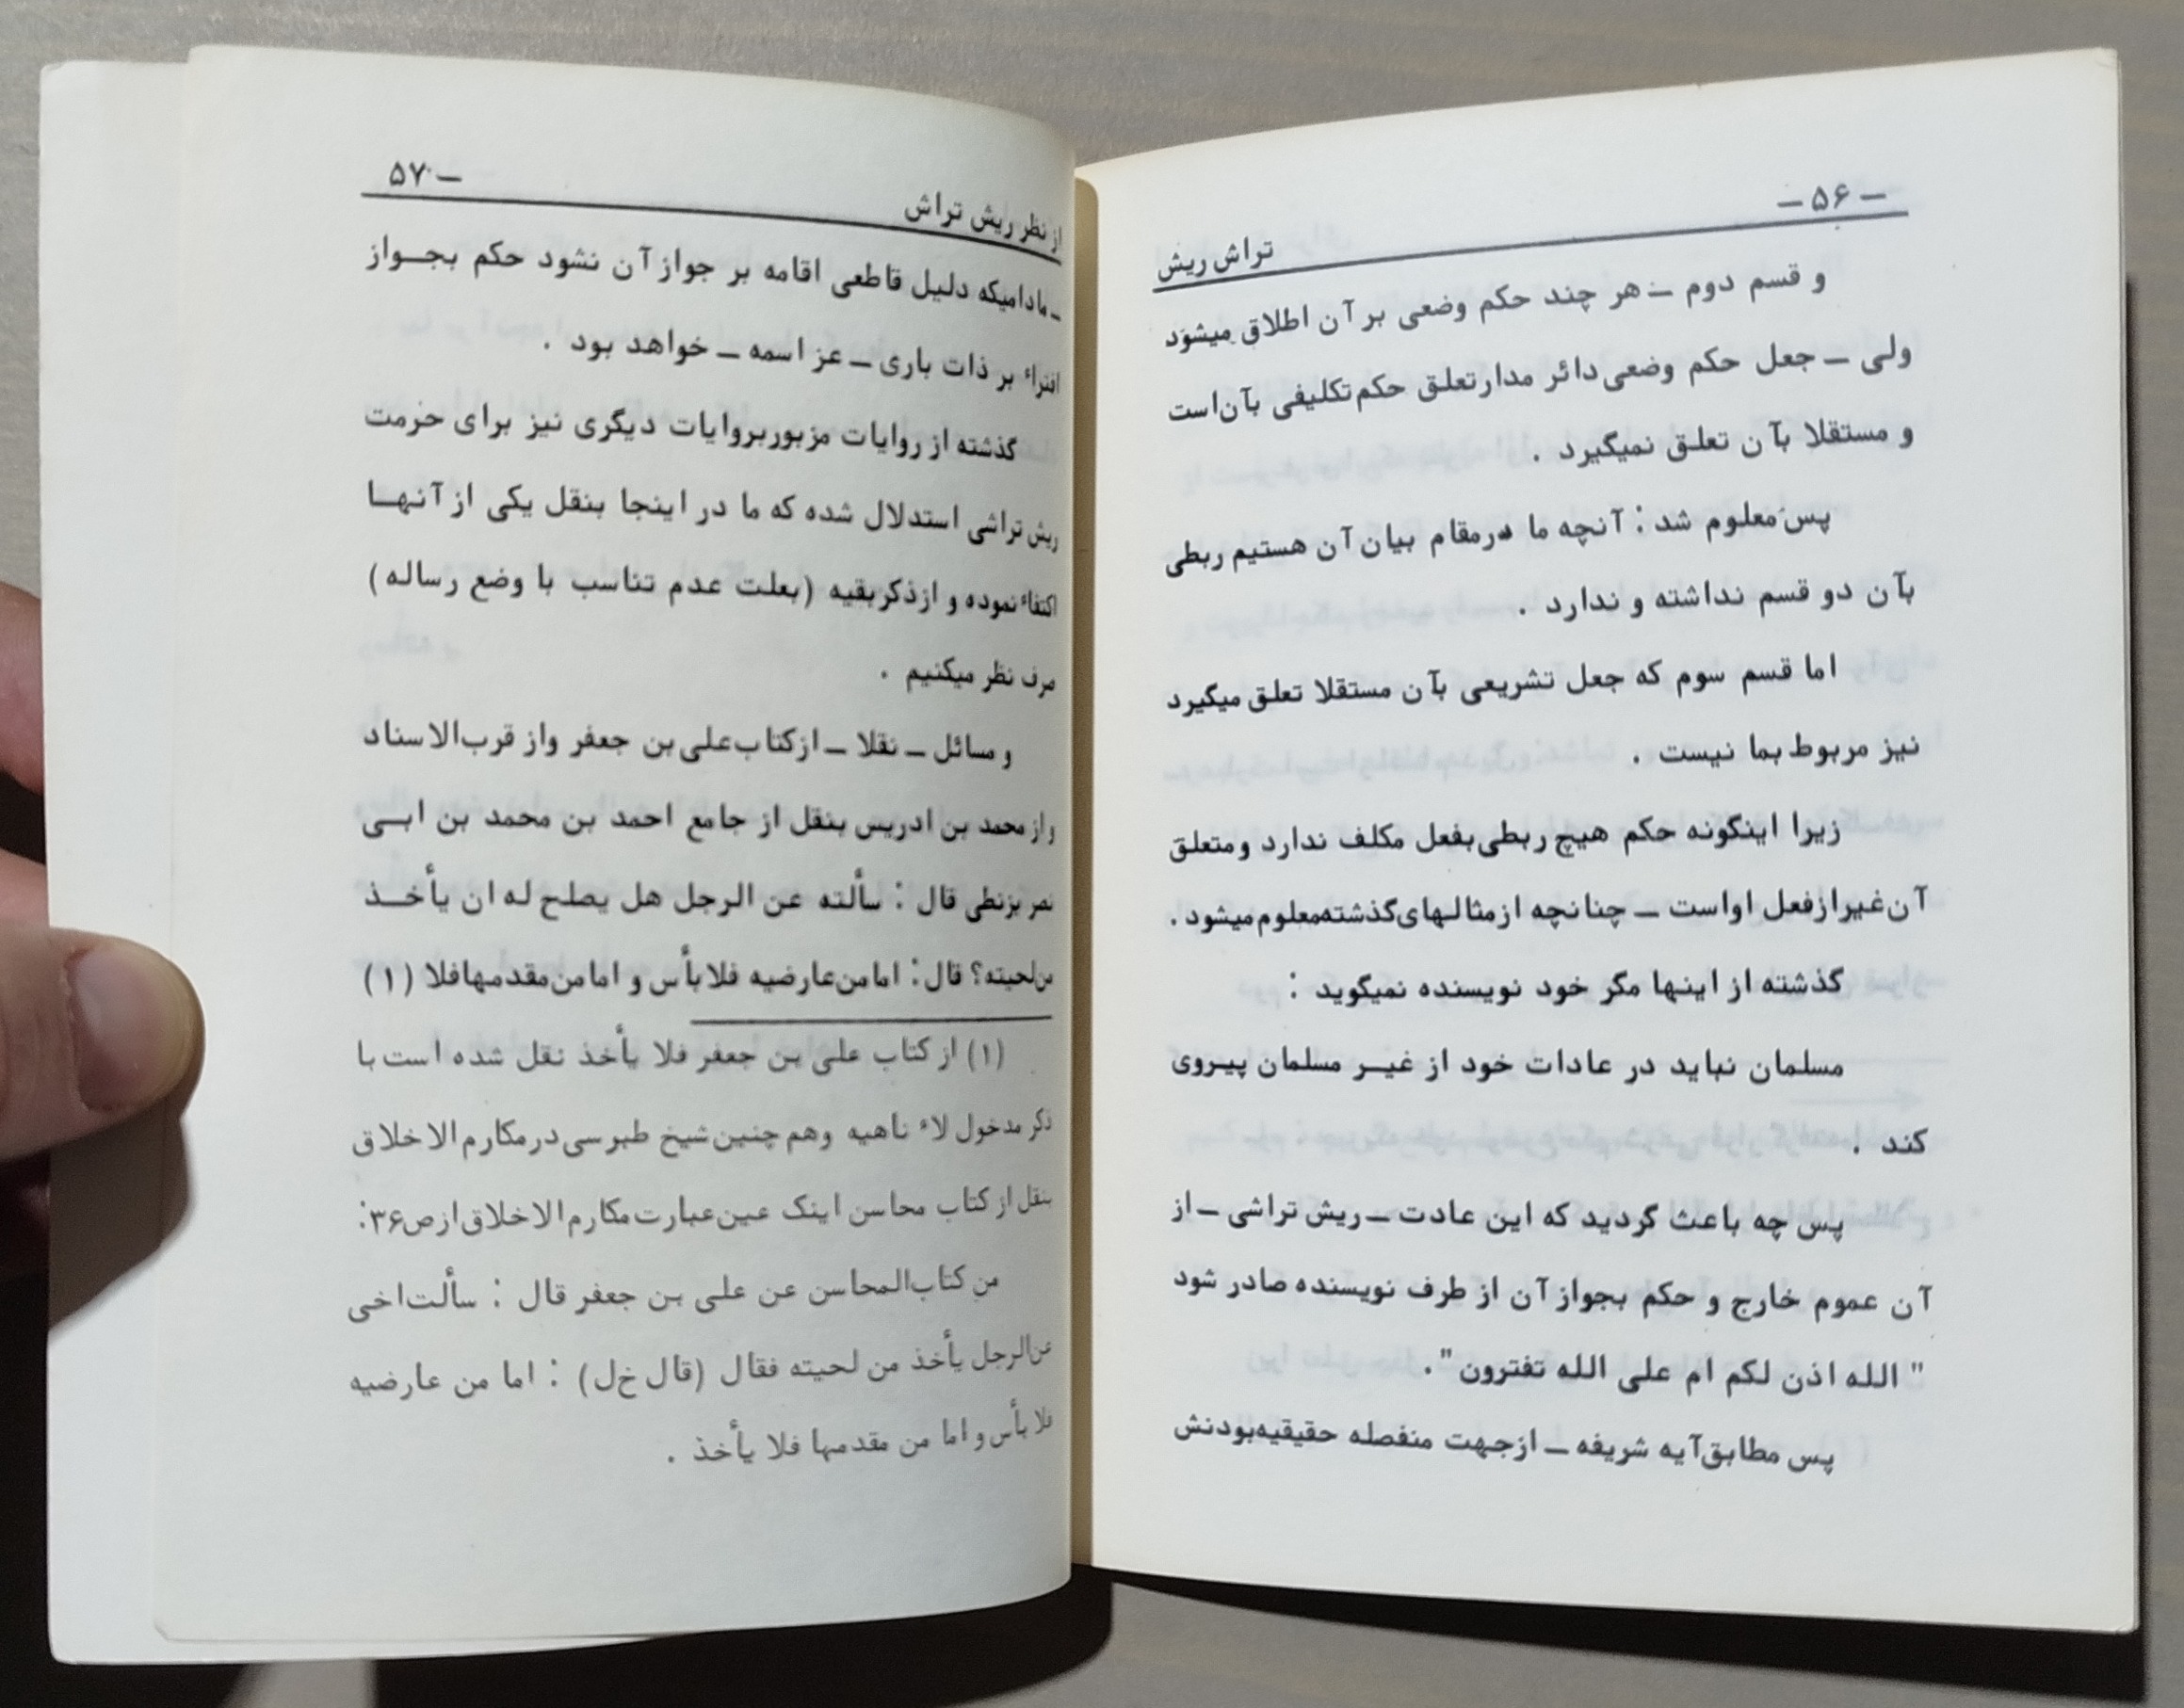 ـ ۵۶ ـ
تراش ریش
و قسم دوم ــ هر چند حکم وضعی بر آن اطلاق میشود
ولی ــ جعل حکم وضعی دائر مدار تعلق حکم تکلیفی بآن است
و مستقلا بآن تعلق نمیگیرد .
پس معلوم شد : آنچه ما در مقام بیان آن هستیم ربطی
بآن دو قسم نداشته و ندارد .
اما قسم سوم که جعل تشریعی بآن مستقلا تعلق میگیرد
نیز مربوط بما نیست .
زیرا اینگونه حکم هیچ ربطی بفعل مکلف ندارد و متعلق
آن غیر از فعل او است ــ چنانچه از مثالهای گذشته معلوم میشود .
گذشته از اینها مگر خود نویسنده نمیگوید :
مسلمان نباید در عادات خود از غیر مسلمان پیروی
کند .
پس چه باعث گردید که این عادت ــ ریش تراشی ــ از
آن عموم خارج و حکم بجواز آن از طرف نویسنده صادر شود
" الله اذن لکم ام علی الله تفترون " .
پس مطابق آیه شریفه ــ از جهت منفصله حقیقیه بودنش
ـ ۵۷
از نظر ریش تراش
ــ مادامیکه دلیل قاطعی اقامه بر جواز آن نشود حکم بجواز
افتراء بر ذات باری ــ عز اسمه ــ خواهد بود .
گذشته از روایات مزبور بروایات دیگری نیز برای حرمت
ریش تراشی استدلال شده که ما در اینجا بنقل یکی از آنها
اکتفاء نموده و از ذکر بقیه (بعلت عدم تناسب با وضع رساله)
صرف نظر میکنیم .
و مسائل ــ نقلا ــ از کتاب علی بن جعفر و از قرب الاسناد
و از محمد بن ادریس بنقل از جامع احمد بن محمد بن ابی
نصر بزنطی قال : سألته عن الرجل هل یصلح له ان یأخذ
من لحیته؟ قال : اما من عارضیه فلا بأس و اما من مقدمها فلا (۱)
(۱) از کتاب علی بن جعفر فلا یأخذ نقل شده است با
ذکر مدخول لاء ناهیه و هم چنین شیخ طبرسی در مکارم الاخلاق
بنقل از کتاب محاسن اینک عین عبارت مکارم الاخلاق از ص ۳۶ :
من کتاب المحاسن عن علی بن جعفر قال : سألت اخی
عن الرجل یأخذ من لحیته فقال (قال خ ل) : اما من عارضیه
فلا بأس و اما من مقدمها فلا یأخذ .